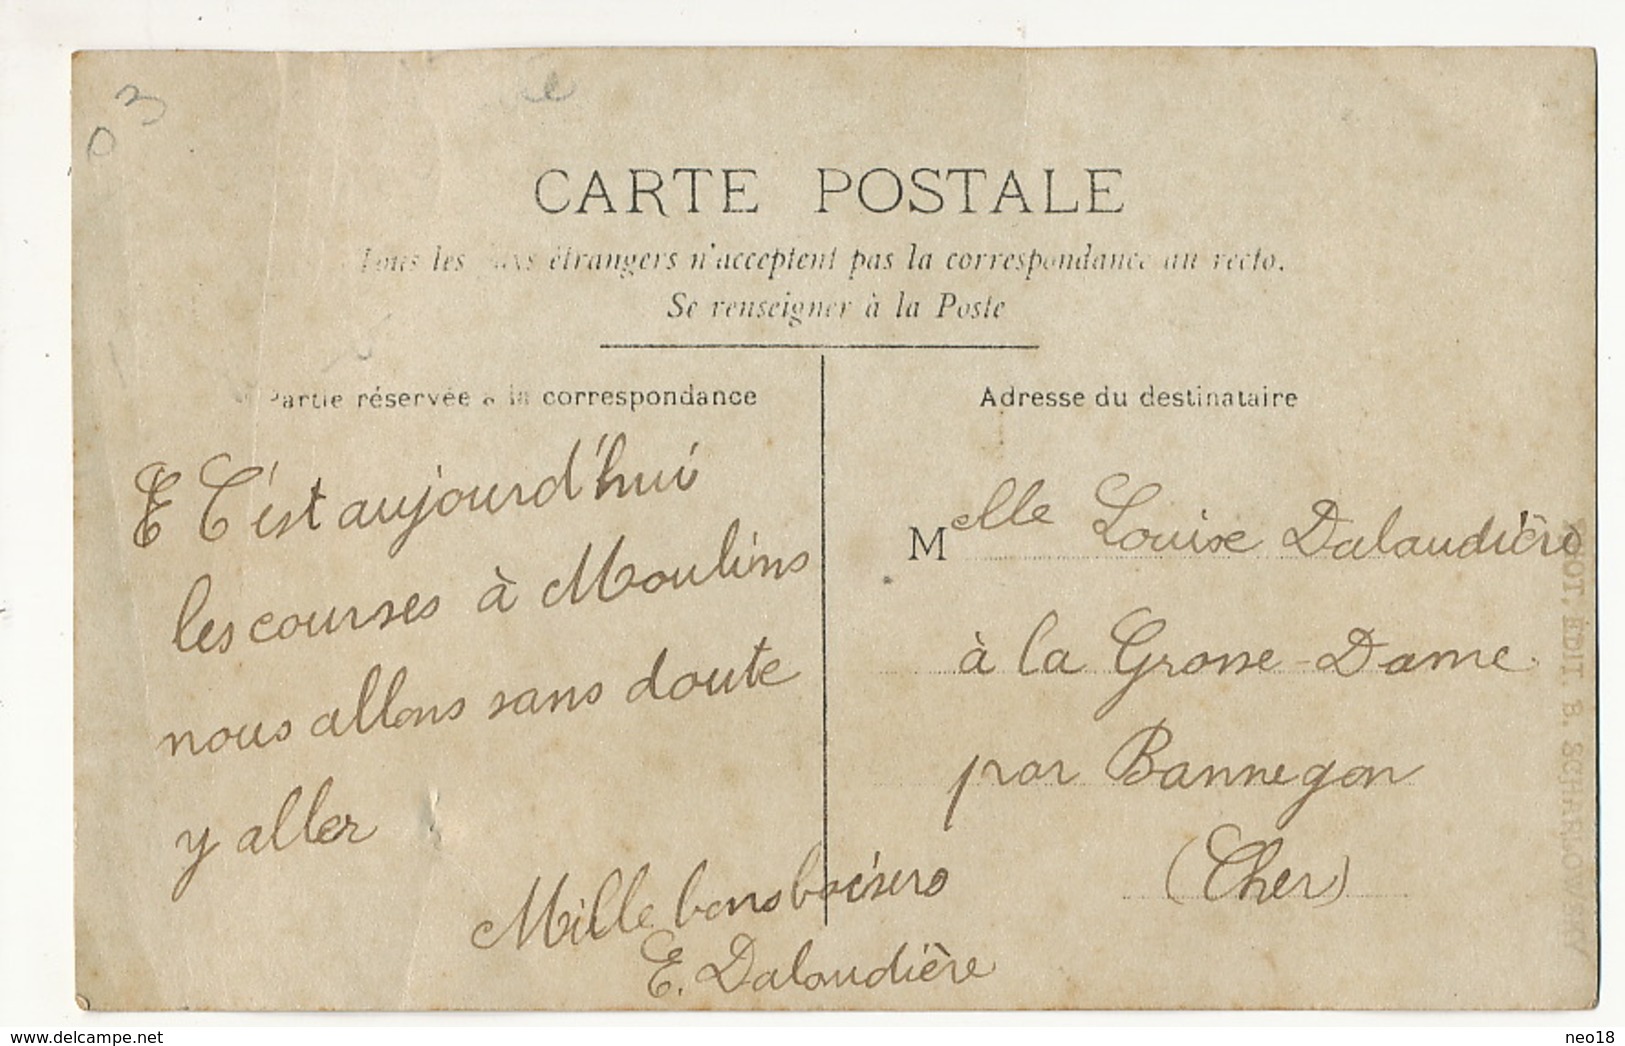 03
CARTE POSTALE
Tous les pays étrangers n'acceptent pas la correspondance au recto.
Se renseigner à la Poste
Partie réservée à la correspondance
E C'est aujourd'hui
les courses à Moulins
nous allons sans doute
y aller
Mille bons baisers
E. Dalaudière
Adresse du destinataire
Melle Louise Dalaudière
à la Grosse-Dame
par Bannegon
(Cher)
PHOT. EDIT. B. SCHARLOWSKY
www.delcampe.net
neo18